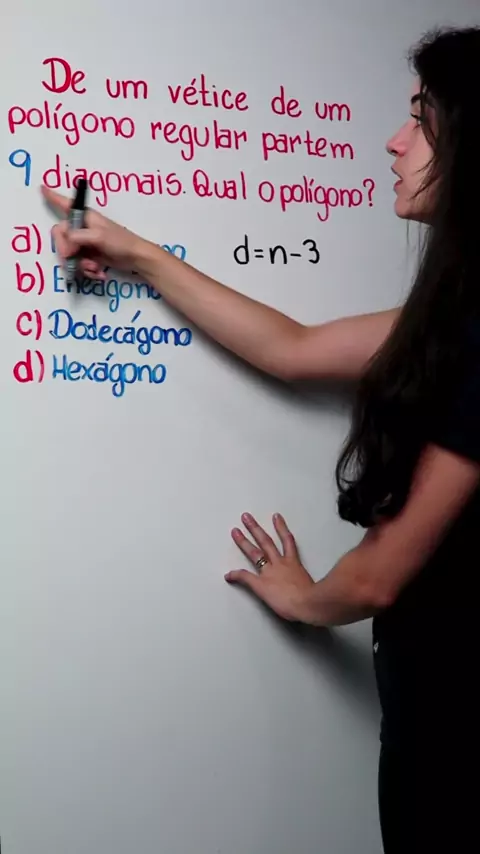 De um vétice de um
polígono regular partem
9 diagonais. Qual o polígono?
a)
d=n-3
b) Eneágono
c) Dodecágono
d) Hexágono